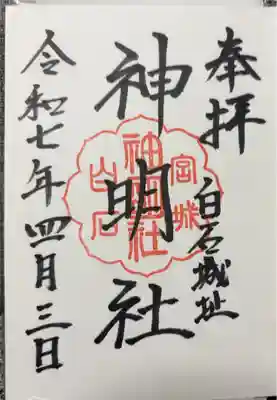 奉拝
白石城址
神明社
令和七年四月三日
宮城
神明社
白石